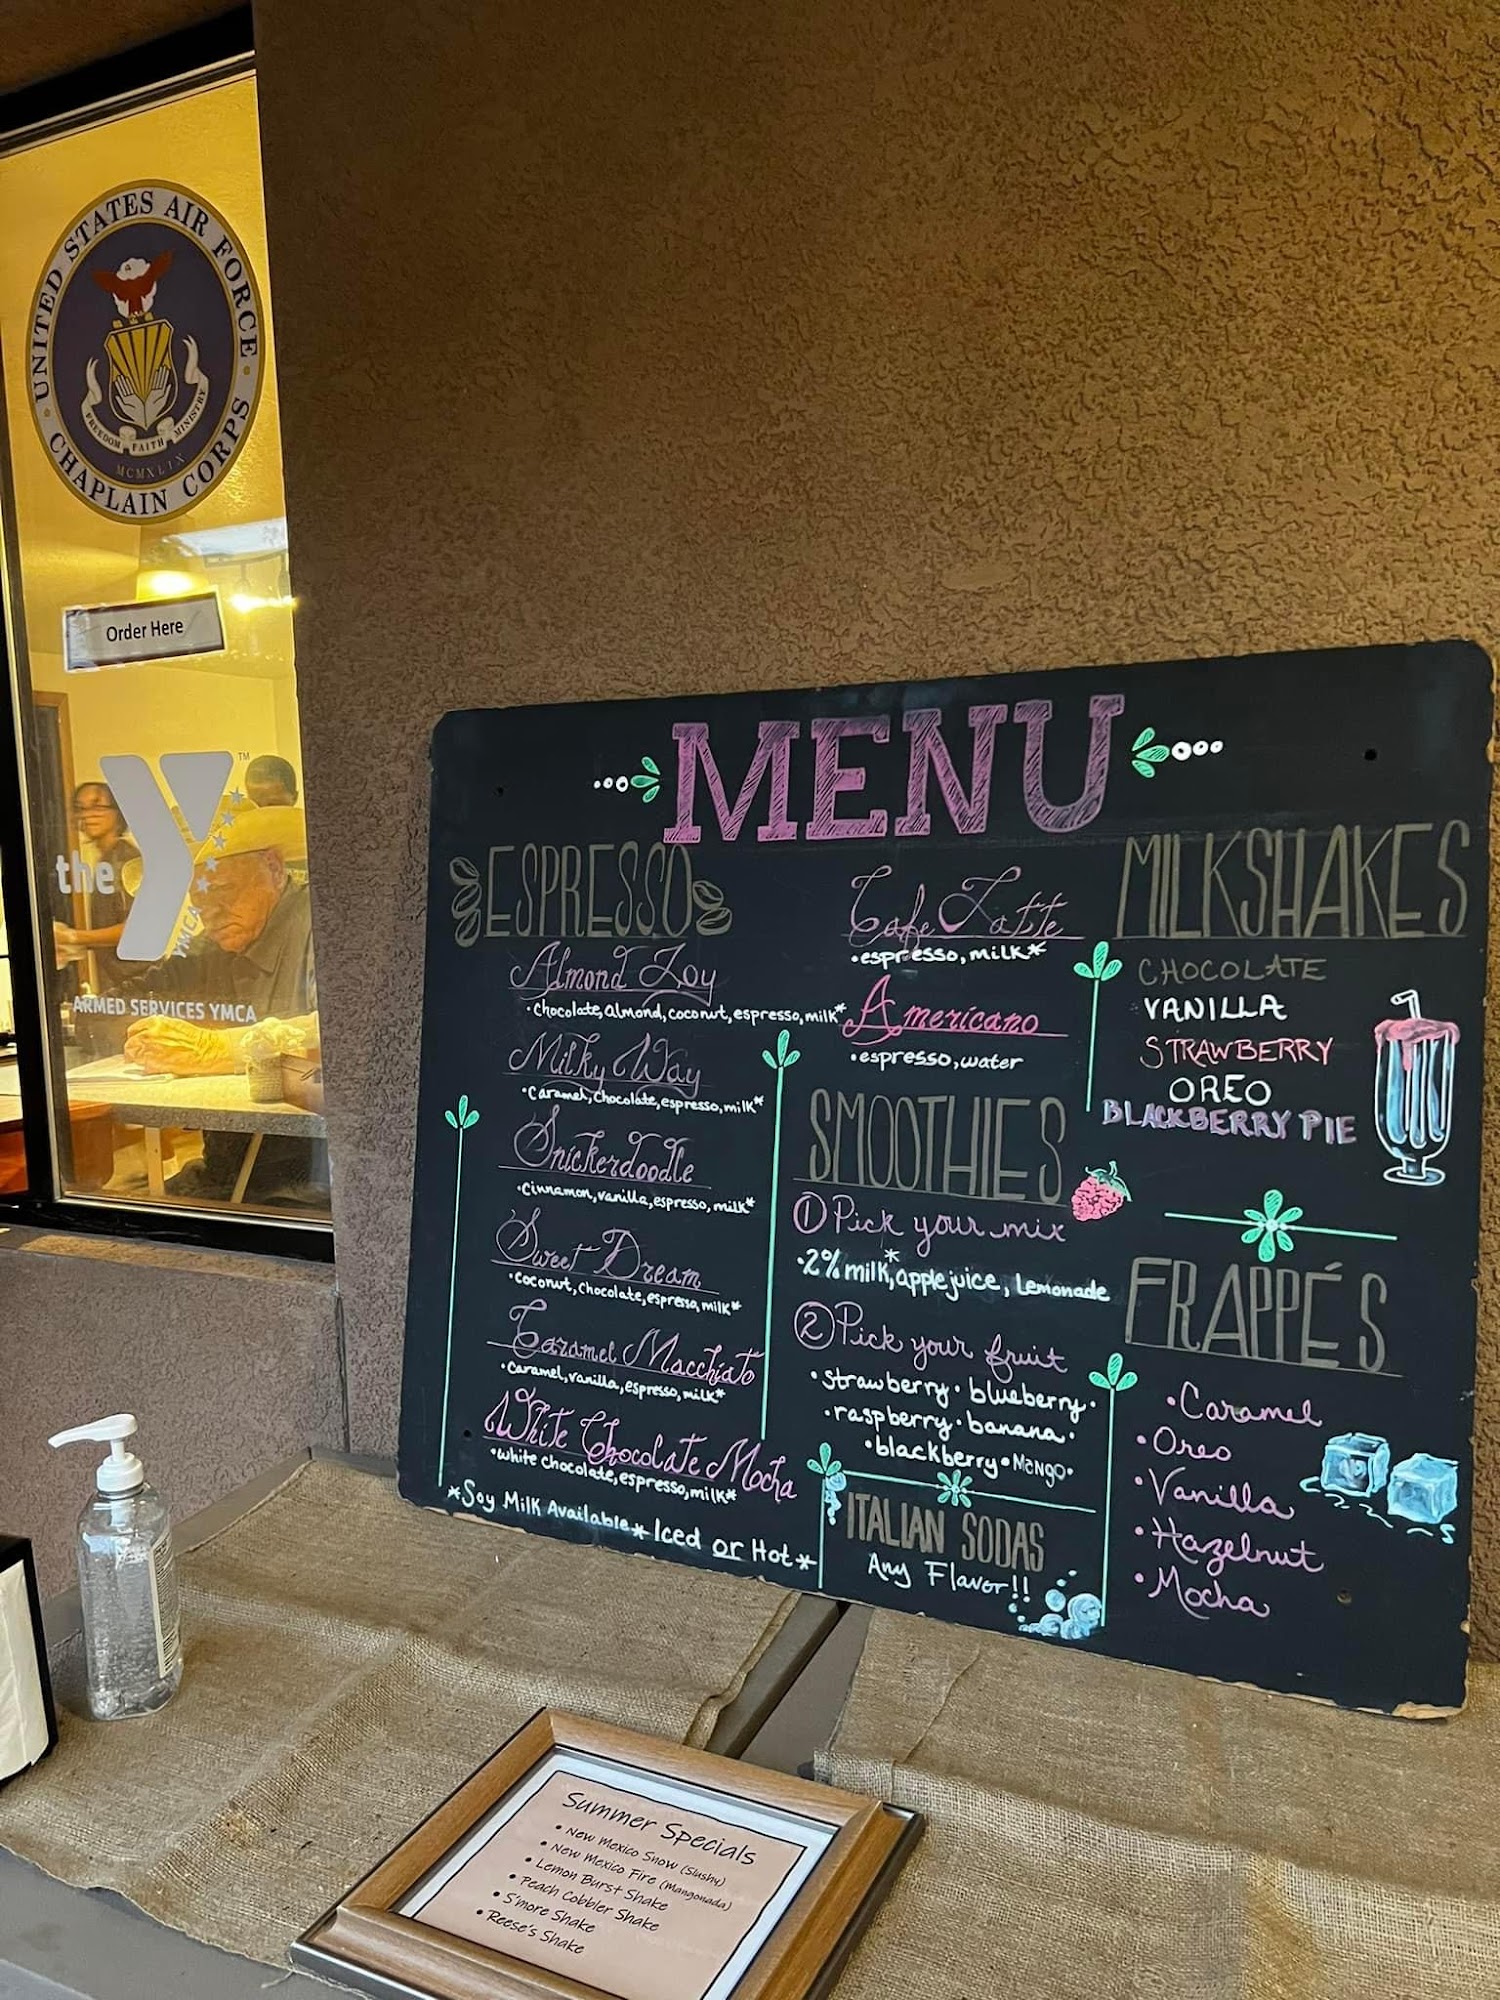 UNITED STATES AIR FORCE
CHAPLAIN CORPS
FREEDOM FAITH MINISTRY
MCMXLIX
Order Here
the Y™
YMCA
ARMED SERVICES YMCA
MENU
ESPRESSO
Almond Joy
•Chocolate, almond, coconut, espresso, milk*
Milky Way
•Caramel, chocolate, espresso, milk*
Snickerdoodle
•Cinnamon, vanilla, espresso, milk*
Sweet Dream
•Coconut, chocolate, espresso, milk*
Caramel Macchiato
•caramel, vanilla, espresso, milk*
White Chocolate Mocha
•white chocolate, espresso, milk*
*Soy Milk Available* Iced or Hot*
Cafe Latte
•espresso, milk*
Americano
•espresso, water
SMOOTHIES
① Pick your mix
•2% milk*, apple juice, Lemonade
② Pick your fruit
•strawberry•blueberry•
•raspberry•banana•
•blackberry•Mango•
ITALIAN SODAS
Any Flavor!!
MILKSHAKES
CHOCOLATE
VANILLA
STRAWBERRY
OREO
BLACKBERRY PIE
FRAPPÉS
•Caramel
•Oreo
•Vanilla
•Hazelnut
•Mocha
Summer Specials
• New Mexico Snow (Slushy)
• New Mexico Fire (Mangonada)
• Lemon Burst Shake
• Peach Cobbler Shake
• S'more Shake
• Reese's Shake